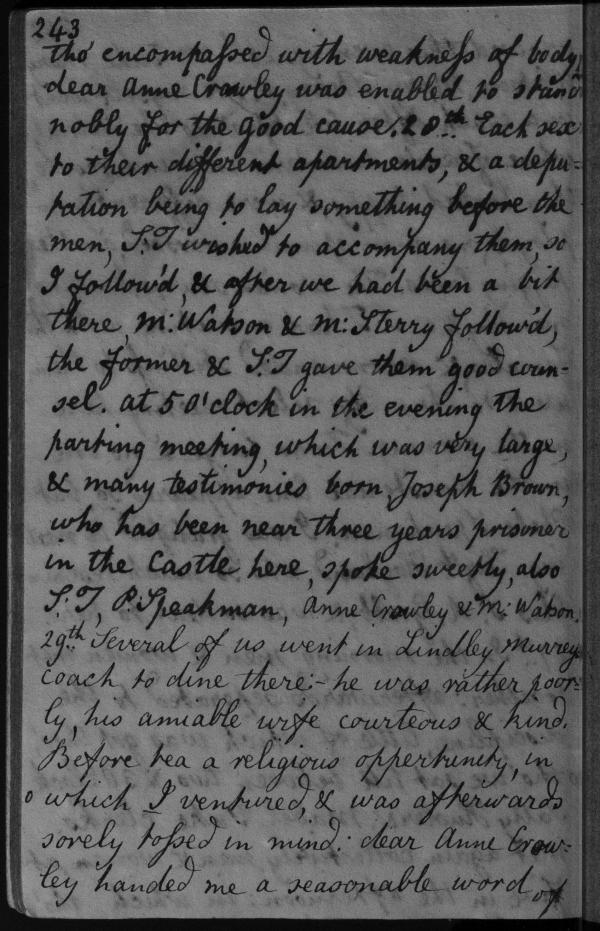 243
tho' encompassed with weakness of body,
dear Anne Crawley was enabled to stand
nobly for the good cause. 28th.. Each sex
to their different apartments, & a depu=
tation being to lay something before the
men, S:T wished to accompany them, so
I follow'd, & after we had been a bit
there, M: Watson & M: Sterry follow'd,
the former & S:T gave them good coun-
sel. at 5 O'clock in the evening the
parting meeting, which was very large,
& many testimonies born, Joseph Brown,
who has been near three years prisoner
in the Castle here, spoke sweetly, also
S:T, P: Speakman, Anne Crawley & M: Watson.
29th.. Several of us went in Lindley Murrey
coach to dine there:- he was rather poor=
ly, his amiable wife courteous & kind.
Before tea a religious oppertunity, in
o which I ventured, & was afterwards
sorely tossed in mind: dear Anne Craw=
ley handed me a seasonable word of